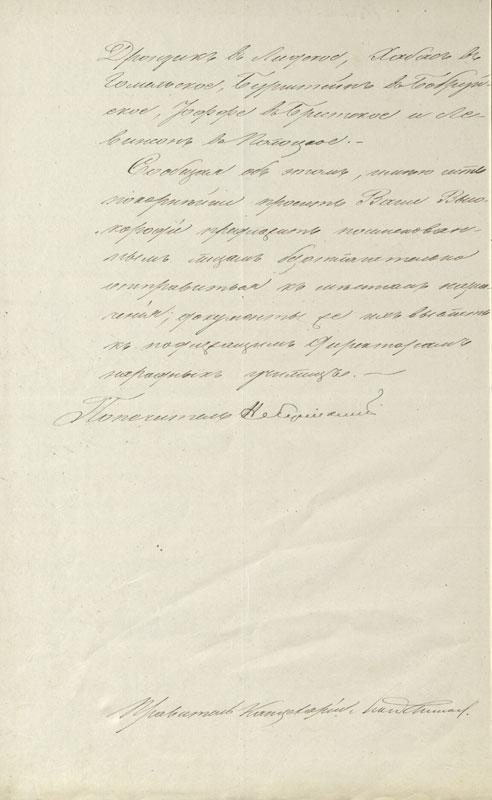 Дрондикъ въ Лидское, Хабасъ въ
Гомельское, Бурштейнъ въ Бобруй-
ское, Іоффе въ Брестское и Ле-
винсонъ въ Полоцкое. —
Сообщая объ этомъ, имѣю честь
покорнѣйше просить Ваше Высо-
кородіе пригласить поименован-
нымъ лицамъ безотлагательно
отправиться къ мѣстамъ назна-
ченія; документы же ихъ выслать
къ подлежащимъ Директорамъ
народныхъ училищъ. —
Попечитель
Правитель Канцеляріи